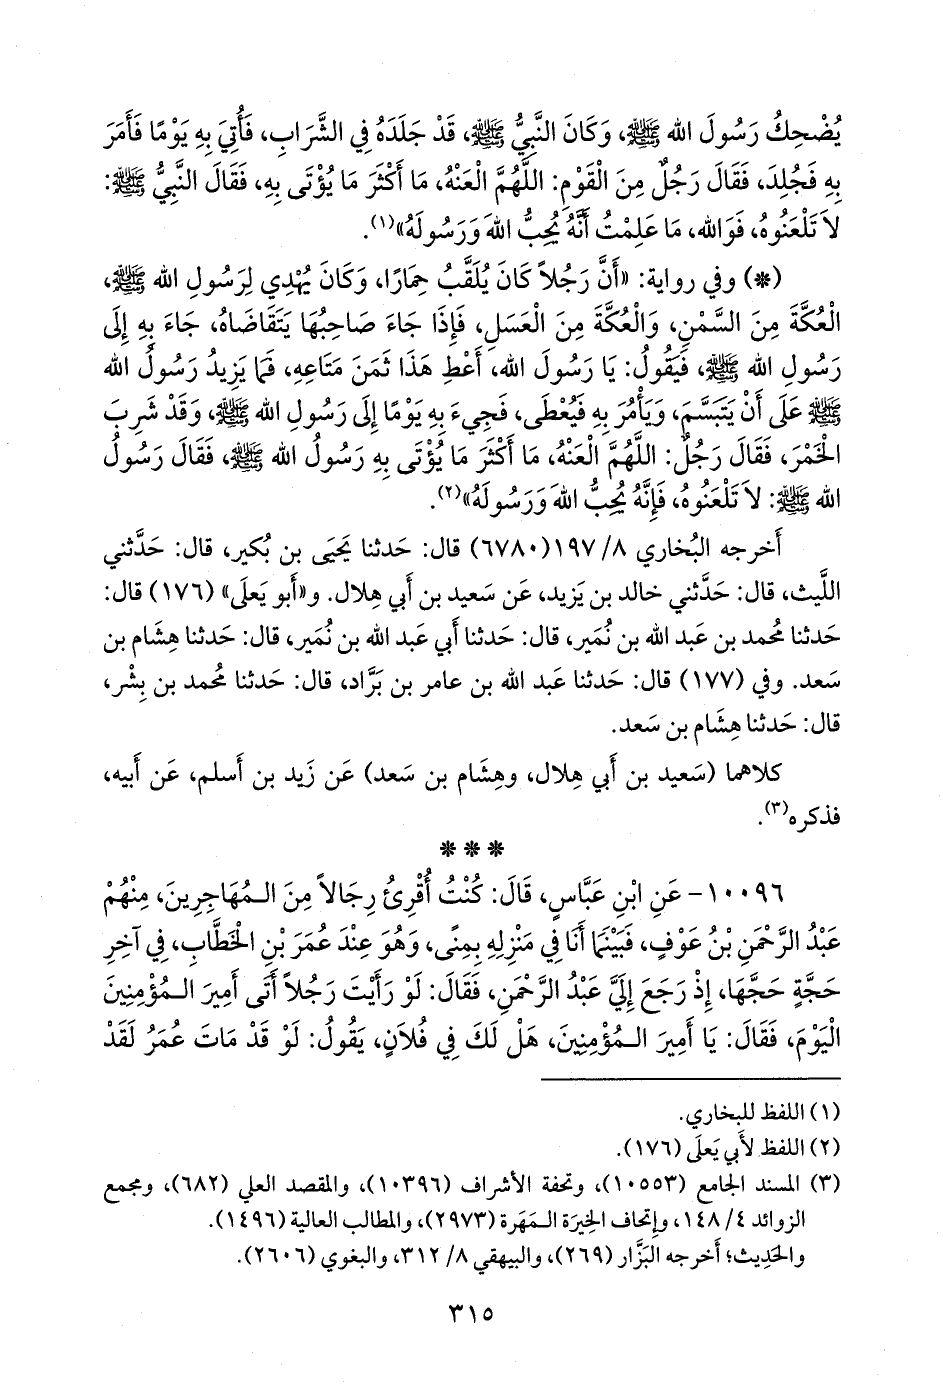 يُضْحِكُ رَسُولَ الله ﷺ، وَكَانَ النَّبِيُّ ﷺ، قَدْ جَلَدَهُ فِي الشَّرَابِ، فَأُتِيَ بِهِ يَوْمًا فَأَمَرَ
بِهِ فَجُلِدَ، فَقَالَ رَجُلٌ مِنَ الْقَوْمِ: اللَّهُمَّ الْعَنْهُ، مَا أَكْثَرَ مَا يُؤْتَى بِهِ، فَقَالَ النَّبِيُّ ﷺ:
لاَ تَلْعَنُوهُ، فَوَالله، مَا عَلِمْتُ أَنَّهُ يُحِبُّ اللهَ وَرَسُولَهُ»(١).
(*) وفي رواية: «أَنَّ رَجُلاً كَانَ يُلَقَّبُ حِمَارًا، وَكَانَ يُهْدِي لِرَسُولِ الله ﷺ،
الْعُكَّةَ مِنَ السَّمْنِ، وَالْعُكَّةَ مِنَ الْعَسَلِ، فَإِذَا جَاءَ صَاحِبُهَا يَتَقَاضَاهُ، جَاءَ بِهِ إِلَى
رَسُولِ الله ﷺ، فَيَقُولُ: يَا رَسُولَ الله، أَعْطِ هَذَا ثَمَنَ مَتَاعِهِ، فَمَا يَزِيدُ رَسُولُ الله
ﷺ عَلَى أَنْ يَتَبَسَّمَ، وَيَأْمُرَ بِهِ فَيُعْطَى، فَجِيءَ بِهِ يَوْمًا إِلَى رَسُولِ الله ﷺ، وَقَدْ شَرِبَ
الْخَمْرَ، فَقَالَ رَجُلٌ: اللَّهُمَّ الْعَنْهُ، مَا أَكْثَرَ مَا يُؤْتَى بِهِ رَسُولُ الله ﷺ، فَقَالَ رَسُولُ
الله ﷺ: لاَ تَلْعَنُوهُ، فَإِنَّهُ يُحِبُّ اللهَ وَرَسُولَهُ»(٢).
أَخرجه البُخاري ٨/ ١٩٧(٦٧٨٠) قال: حَدثنا يَحيَى بن بُكير، قال: حَدَّثني
اللَّيث، قال: حَدَّثني خالد بن يَزيد، عَن سَعيد بن أَبي هِلال. و«أَبو يَعلَى» (١٧٦) قال:
حَدثنا مُحمد بن عَبد الله بن نُمَير، قال: حَدثنا أَبي عَبد الله بن نُمَير، قال: حَدثنا هِشَام بن
سَعد. وفي (١٧٧) قال: حَدثنا عَبد الله بن عامر بن بَرَّاد، قال: حَدثنا مُحمد بن بِشْر،
قال: حَدثنا هِشَام بن سَعد.
كلاهما (سَعيد بن أَبي هِلال، وهِشَام بن سَعد) عَن زَيد بن أَسلم، عَن أَبيه،
فذكره(٣).
* * *
١٠٠٩٦- عَنِ ابْنِ عَبَّاسٍ، قَالَ: كُنْتُ أُقْرِئُ رِجَالاً مِنَ الـمُهَاجِرِينَ، مِنْهُمْ
عَبْدُ الرَّحْمَنِ بْنُ عَوْفٍ، فَبَيْنَمَا أَنَا فِي مَنْزِلِهِ بِمِنًى، وَهُوَ عِنْدَ عُمَرَ بْنِ الْخَطَّابِ، فِي آخِرِ
حَجَّةٍ حَجَّهَا، إِذْ رَجَعَ إِلَيَّ عَبْدُ الرَّحْمَنِ، فَقَالَ: لَوْ رَأَيْتَ رَجُلاً أَتَى أَمِيرَ الـمُؤْمِنِينَ
الْيَوْمَ، فَقَالَ: يَا أَمِيرَ الـمُؤْمِنِينَ، هَلْ لَكَ فِي فُلاَنٍ، يَقُولُ: لَوْ قَدْ مَاتَ عُمَرُ لَقَدْ
(١) اللفظ للبخاري.
(٢) اللفظ لأَبي يَعلَى (١٧٦).
(٣) المسند الجامع (١٠٥٥٣)، وتحفة الأشراف (١٠٣٩٦)، والمقصد العلي (٦٨٢)، ومجمع
الزوائد ٤/ ١٤٨، وإتحاف الخِيرَة الـمَهَرة (٢٩٧٣)، والمطالب العالية (١٤٩٦).
والحَدِيث؛ أخرجه البَزَّار (٢٦٩)، والبيهقي ٨/ ٣١٢، والبغوي (٢٦٠٦).
٣١٥